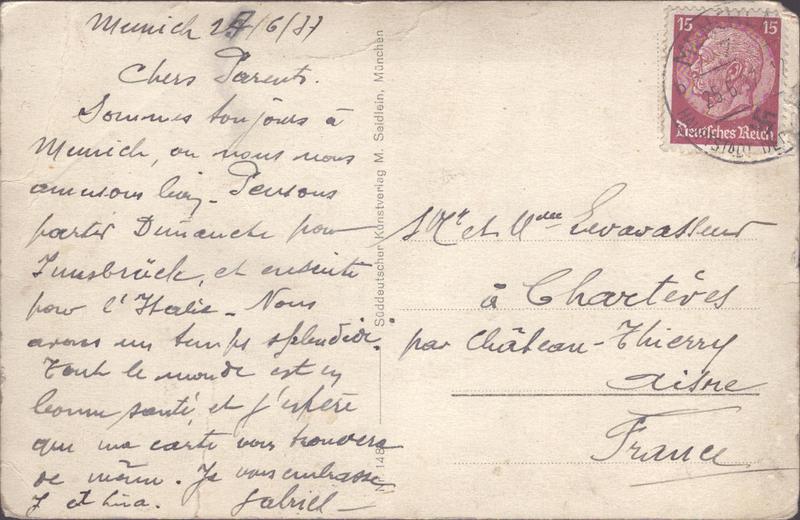 Munich 25/6/37
Chers Parents.
Sommes toujours à
Munich, ou nous nous
amusons bien - Pensons
partir Dimanche pour
Innsbrück, et ensuite
pour l'Italie - Nous
avons un temps splendide.
Tout le monde est en
bonne santé, et j'espère
que ma carte vous trouvera
de même. Je vous embrasse
Gabriel -
Süddeutscher Kunstverlag M. Seidlein, München
Nr. 148
15 15
Deutsches Reich
25.6.
Mr et Mme Levavasseur
à Chartèves
par Château-Thierry
Aisne
France